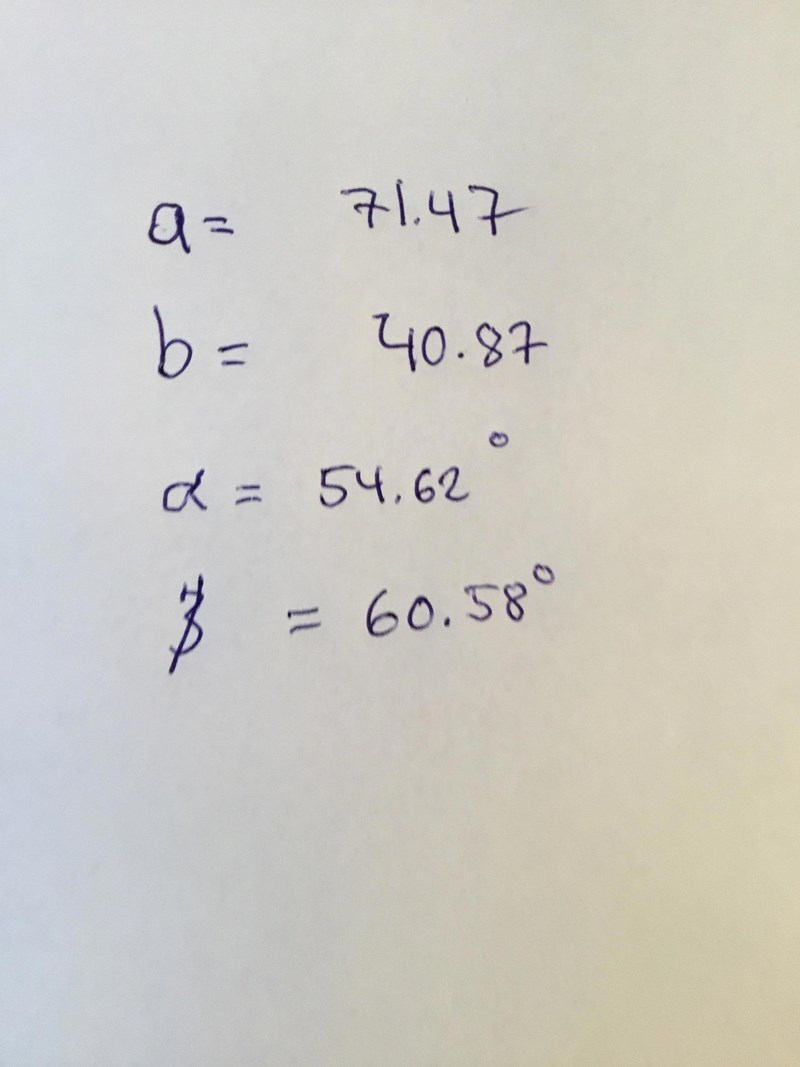 a = 71.47
b = 40.87
α = 54.62°
= 60.58°